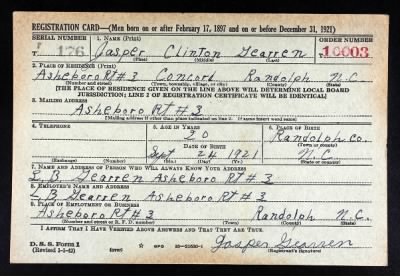 REGISTRATION CARD—(Men born on or after February 17, 1897 and on or before December 31, 1921)
SERIAL NUMBER 1. NAME (Print) ORDER NUMBER
T 176 Jasper Clinton Gearren 10003
(First) (Middle) (Last)
2. PLACE OF RESIDENCE (Print)
Asheboro RT # 3 Concord Randolph N.C.
(Number and street) (Town, township, village, or city) (County) (State)
[THE PLACE OF RESIDENCE GIVEN ON THE LINE ABOVE WILL DETERMINE LOCAL BOARD
JURISDICTION; LINE 2 OF REGISTRATION CERTIFICATE WILL BE IDENTICAL]
3. MAILING ADDRESS
Asheboro RT # 3
[Mailing address if other than place indicated on line 2. If same insert word same]
4. TELEPHONE 5. AGE IN YEARS 6. PLACE OF BIRTH
20 Randolph Co.
DATE OF BIRTH (Town or county)
Sept 24 1921 N.C.
(Exchange) (Number) (Mo.) (Day) (Yr.) (State or country)
7. NAME AND ADDRESS OF PERSON WHO WILL ALWAYS KNOW YOUR ADDRESS
L B Gearren Asheboro RT # 3
8. EMPLOYER'S NAME AND ADDRESS
L B Gearren Asheboro RT # 3
9. PLACE OF EMPLOYMENT OR BUSINESS
Asheboro RT # 3 Randolph N.C.
(Number and street or R. F. D. number) (Town) (County) (State)
I AFFIRM THAT I HAVE VERIFIED ABOVE ANSWERS AND THAT THEY ARE TRUE.
D. S. S. Form 1
(Revised 1-1-42) (over) GPO Jasper Gearren
(Registrant's signature)